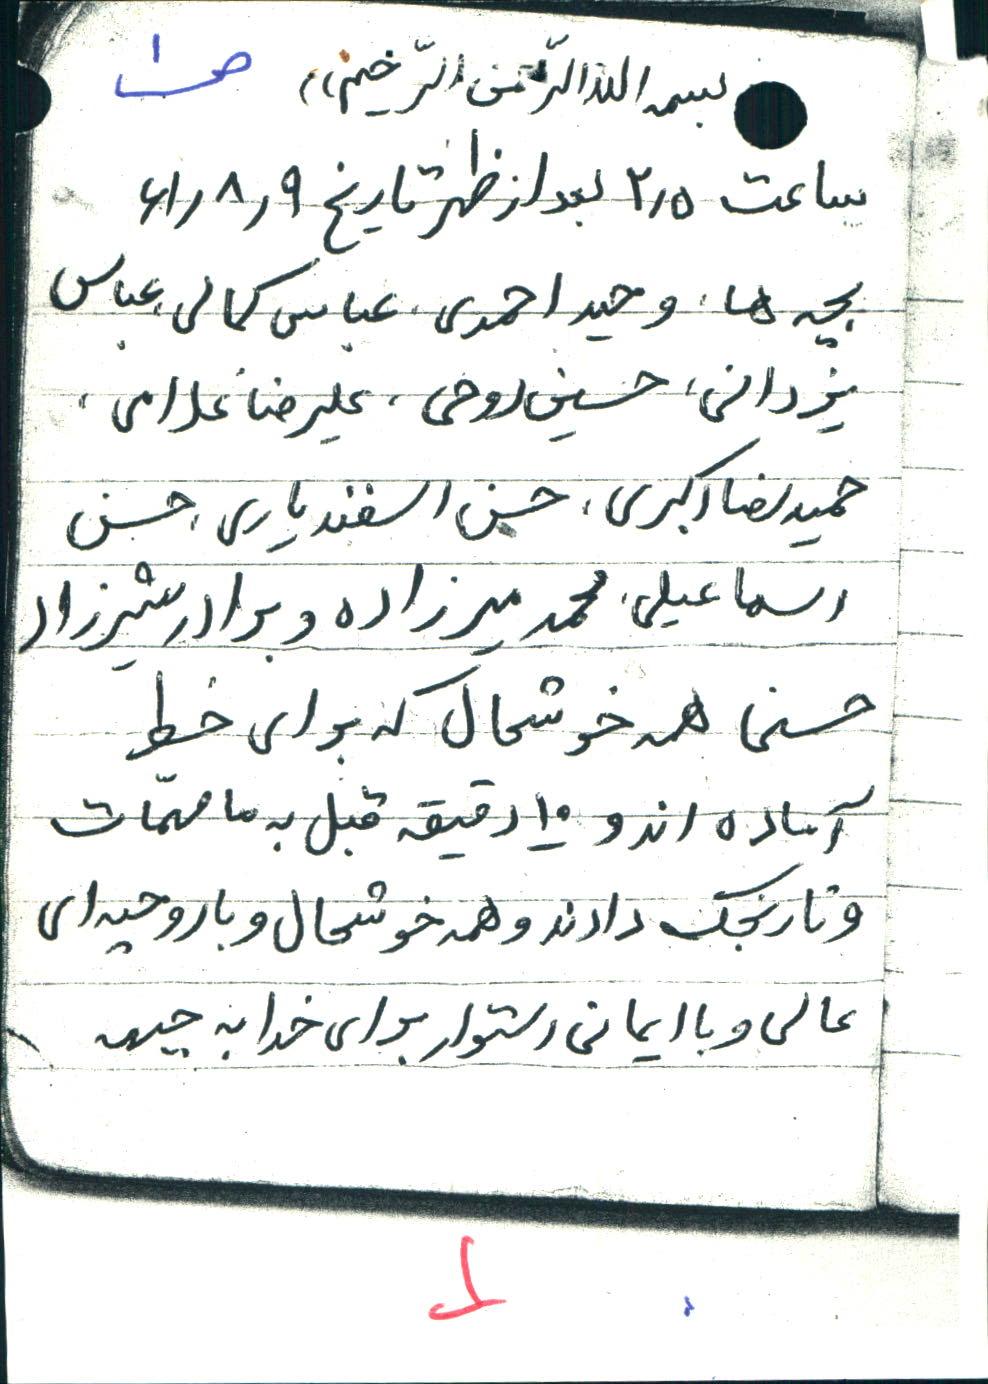 ص ۱
بسمه الله الرّحمن الرّحیم »
ساعت ۲٫۵ بعد از ظهر تاریخ ۶۱٫۸٫۹
بچه ها، وحید احمدی، عباس کمالی، عباس
یزدانی، حسین روحی، علیرضا غلامی،
حمیدرضا اکبری، حسن اسفندیاری، حسن
اسماعیلی، محمد میرزاده و برادر شیرزاد
حسنی همه خوشحال که برای خط
آماده اند و ۱۰ دقیقه قبل به ما مهمّات
و نارنجک دادند و همه خوشحال و با روحیه ای
عالی و با ایمانی استوار برای خدا به جبهه
۱